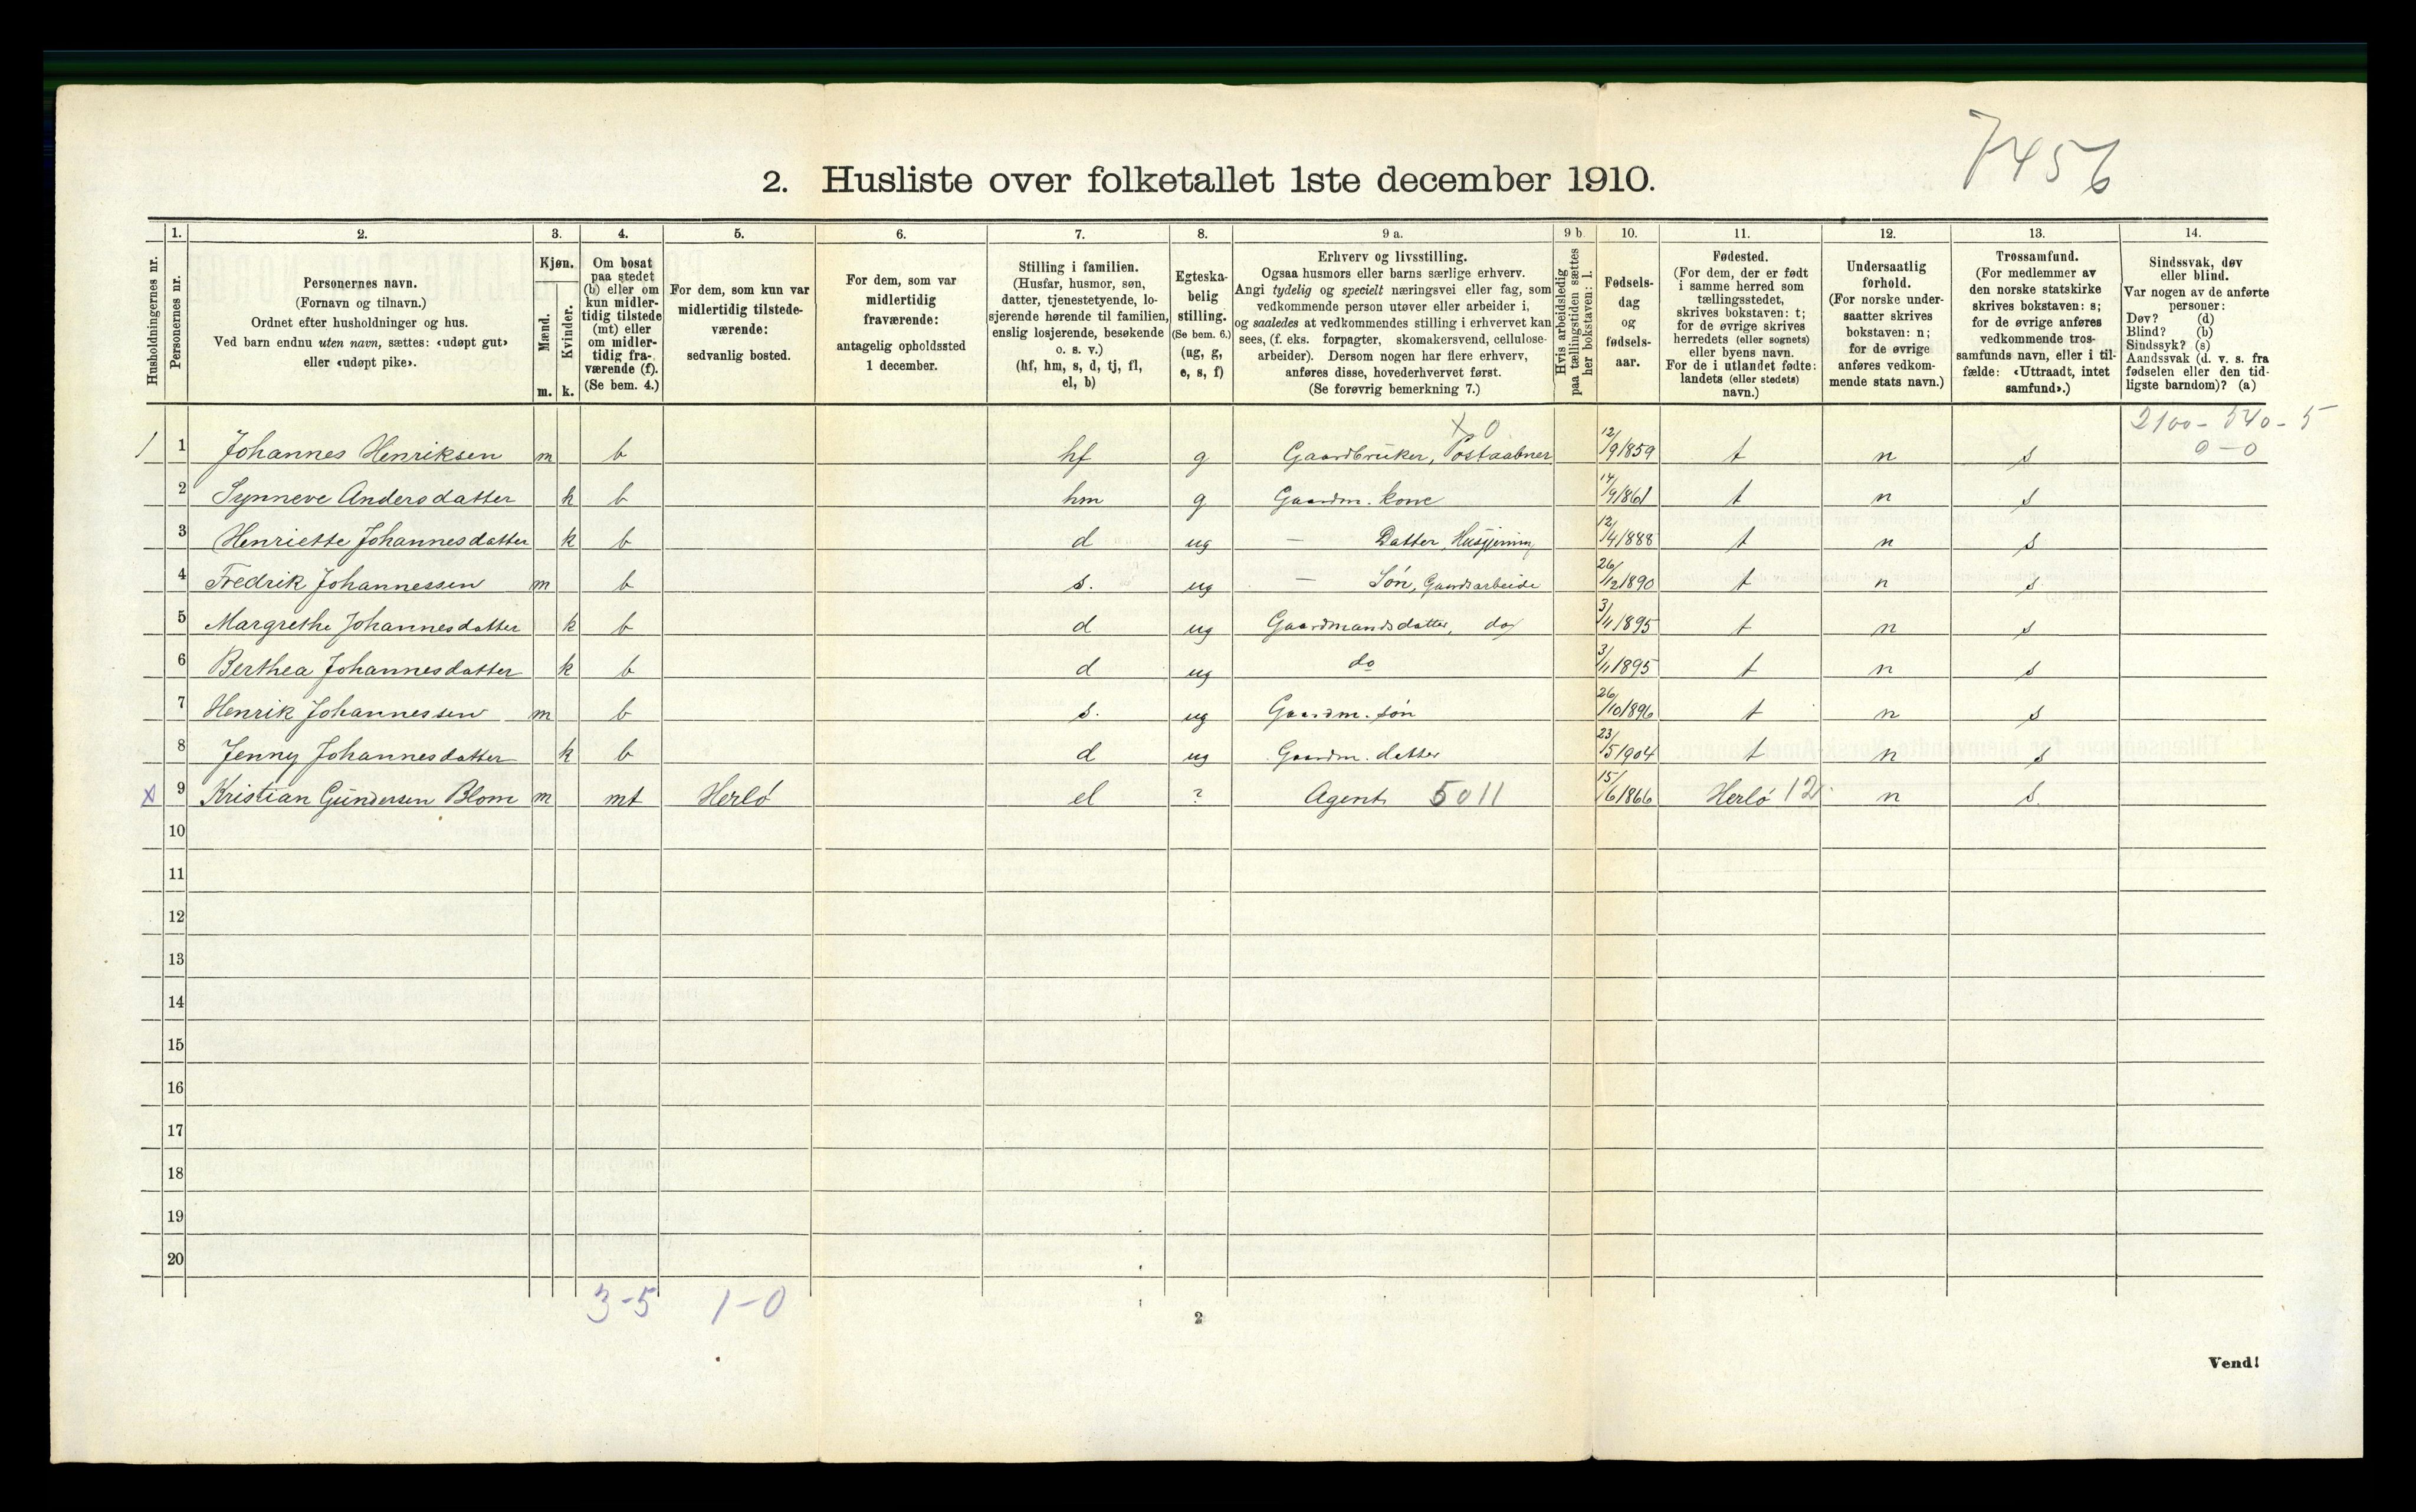 7456
2. Husliste over folketallet 1ste december 1910.
Husholdningernes nr.
1. Personernes nr.
2. Personernes navn.
(Fornavn og tilnavn.)
Ordnet efter husholdninger og hus.
Ved barn endnu uten navn, sættes: «udøpt gut»
eller «udøpt pike».
3. Kjøn.
Mænd. m.
Kvinder. k.
4. Om bosat
paa stedet
(b) eller om
kun midler-
tidig tilstede
(mt) eller
om midler-
tidig fra-
værende (f).
(Se bem. 4.)
5. For dem, som kun var
midlertidig tilstede-
værende:
sedvanlig bosted.
6. For dem, som var
midlertidig
fraværende:
antagelig opholdssted
1 december.
7. Stilling i familien.
(Husfar, husmor, søn,
datter, tjenestetyende, lo-
sjerende hørende til familien,
enslig losjerende, besøkende
o. s. v.)
(hf, hm, s, d, tj, fl,
el, b)
8. Egteska-
belig
stilling.
(Se bem. 6.)
(ug, g,
e, s, f)
9 a. Erhverv og livsstilling.
Ogsaa husmors eller barns særlige erhverv.
Angi tydelig og specielt næringsvei eller fag, som
vedkommende person utøver eller arbeider i,
og saaledes at vedkommendes stilling i erhvervet kan
sees, (f. eks. forpagter, skomakersvend, cellulose-
arbeider). Dersom nogen har flere erhverv,
anføres disse, hovederhvervet først.
(Se forøvrig bemerkning 7.)
9 b. Hvis arbeidsledig
paa tællingstiden sættes
her bokstaven: l.
10. Fødsels-
dag
og
fødsels-
aar.
11. Fødested.
(For dem, der er født
i samme herred som
tællingsstedet,
skrives bokstaven: t;
for de øvrige skrives
herredets (eller sognets)
eller byens navn.
For de i utlandet fødte:
landets (eller stedets)
navn.)
12. Undersaatlig
forhold.
(For norske under-
saatter skrives
bokstaven: n;
for de øvrige
anføres vedkom-
mende stats navn.)
13. Trossamfund.
(For medlemmer av
den norske statskirke
skrives bokstaven: s;
for de øvrige anføres
vedkommende tros-
samfunds navn, eller i til-
fælde: «Uttraadt, intet
samfund».)
14. Sindssvak, døv
eller blind.
Var nogen av de anførte
personer:
Døv? (d)
Blind? (b)
Sindssyk? (s)
Aandssvak (d. v. s. fra
fødselen eller den tid-
ligste barndom)? (a)
X 0 2100 - 540 - 5
1 1 Johannes Henriksen m b hf g Gaardbruker, Postaabner 12/9 1859 t n s 0 - 0
2 Synneve Andersdatter k b hm g Gaardm. kone 14/9 1861 t n s
3 Henriette Johannesdatter k b d ug — Datter, Husgjerning 12/4 1888 t n s
4 Fredrik Johannessen m b s. ug — Søn, Gaardsarbeide 26/12 1890 t n s
5 Margrethe Johannesdatter k b d ug Gaardmandsdatter, do 3/11 1895 t n s
6 Berthea Johannesdatter k b d ug do 3/11 1895 t n s
7 Henrik Johannessen m b s. ug Gaardm. søn 26/10 1896 t n s
8 Jenny Johannesdatter k b d ug Gaardm. datter 23/5 1904 t n s
X 9 Kristian Gundersen Blom m mt Herlö el ? Agent 5011 15/6 1866 Herlö 12 n s
10
11
12
13
14
15
16
17
18
19
20
3-5 1-0
2
Vend!